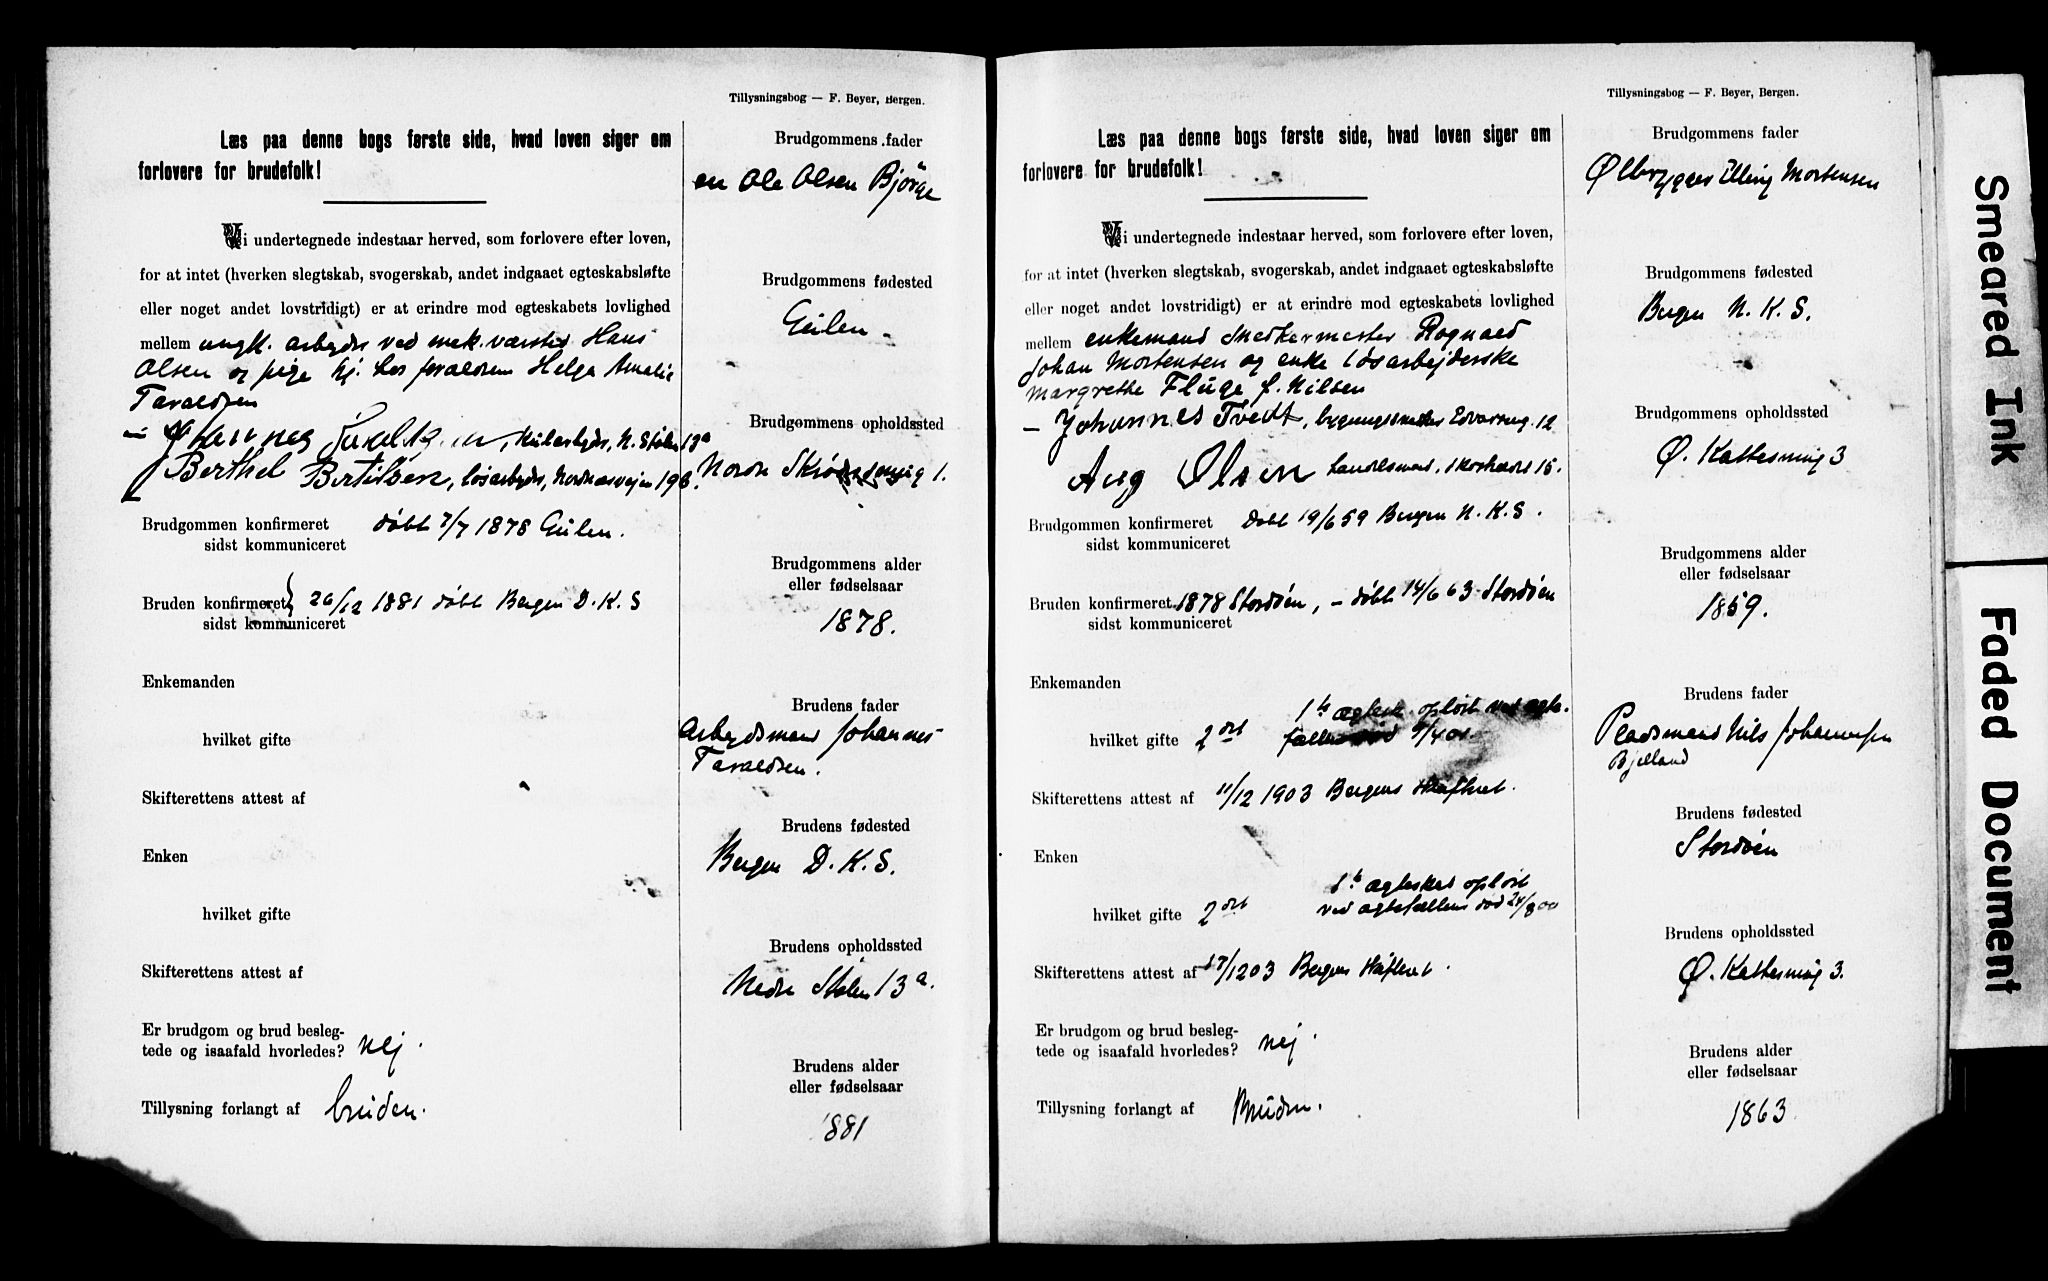 Tillysningsbog — F. Beyer, Bergen.
Læs paa denne bogs første side, hvad loven siger om
forlovere for brudefolk!
Vi undertegnede indestaar herved, som forlovere efter loven,
for at intet (hverken slegtskab, svogerskab, andet indgaaet egteskabsløfte
eller noget andet lovstridigt) er at erindre mod egteskabets lovlighed
mellem ungk. arbeyder ved mek. værsted Hans
Olsen og pige hj. hos forældrene Helga Amalie
Taraldsen
Johannes Taraldsen, N. Stølen 13a
Berthel Bertilsen, løsarbeyder, Nordnesveien
Brudgommen konfirmeret døbt 7/7 1878 Eulen.
sidst kommuniceret
Bruden konfirmeret } 26/12 1881 døbt Bergen D. K. S
sidst kommuniceret
Enkemanden
hvilket gifte
Skifterettens attest af
Enken
hvilket gifte
Skifterettens attest af
Er brudgom og brud besleg-
tede og isaafald hvorledes? nej.
Tillysning forlangt af bruden.
Brudgommens fader
Ole Olsen Bjørge
Brudgommens fødested
Brudgommens opholdssted
Nordre 1.
Brudgommens alder
eller fødselsaar
1878.
Brudens fader
Arbeydsmand Johannes
Taraldsen.
Brudens fødested
Bergen D. K. S.
Brudens opholdssted
Nedre Stølen 13 a.
Brudens alder
eller fødselsaar
1881
Tillysningsbog — F. Beyer, Bergen.
Læs paa denne bogs første side, hvad loven siger om
forlovere for brudefolk!
Vi undertegnede indestaar herved, som forlovere efter loven,
for at intet (hverken slegtskab, svogerskab, andet indgaaet egteskabsløfte
eller noget andet lovstridigt) er at erindre mod egteskabets lovlighed
mellem enkemand snedkermester Rognald
Johan Mortensen og enke løsarbejderske
Margrethe Fluge f. Nilsen
– Johannes Tvedt, 12
Aug Olsen 15.
Brudgommen konfirmeret døbt 19/6 59 Bergen N. K. S.
sidst kommuniceret
Bruden konfirmeret 1878 Stordøen, – døbt 14/6 63 Stordøen
sidst kommuniceret
Enkemanden
hvilket gifte 2det 1te ægtesk. opløst ved ægte-
Skifterettens attest af 11/12 1903 Bergens skifteret.
Enken
hvilket gifte 2det 1te ægteskab opløst
ved ægtefællens død 24/8 00
Skifterettens attest af 17/12 03 Bergens skifteret.
Er brudgom og brud besleg-
tede og isaafald hvorledes? nej.
Tillysning forlangt af Bruden.
Brudgommens fader
Ølbrygger Elling Mortensen
Brudgommens fødested
Bergen N. K. S.
Brudgommens opholdssted
Ø. Kattesmug 3
Brudgommens alder
eller fødselsaar
1859.
Brudens fader
Pladsmand Nils Johannesen
Bjelland
Brudens fødested
Stordøen
Brudens opholdssted
Ø. Kattesmug 3.
Brudens alder
eller fødselsaar
1863
Smeared Ink
Faded Document